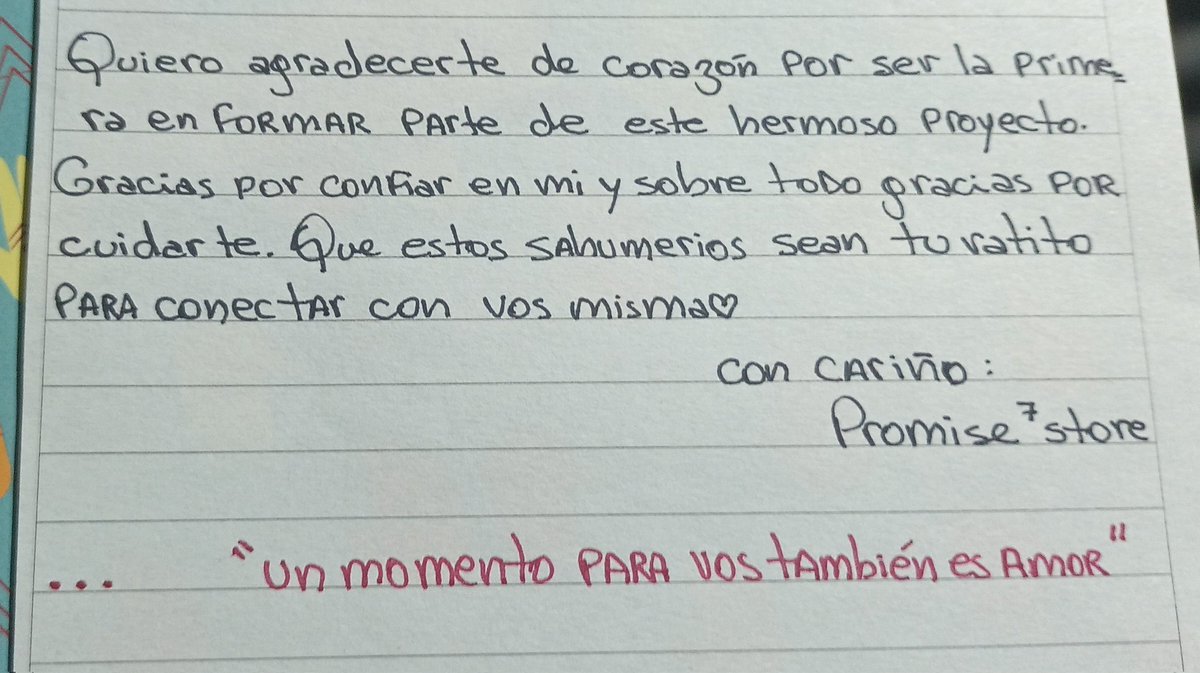 Quiero agradecerte de corazón por ser la prime=
ra en FORMAR PARte de este hermoso proyecto.
Gracias por confiar en mi y sobre toDo gracias POR
cuidarte. Que estos sAhumerios sean tu ratito
PARA conectAr con vos misma♡
con CAriño:
Promise⁷ store
... "un momento PARA vos tAmbién es AmoR"